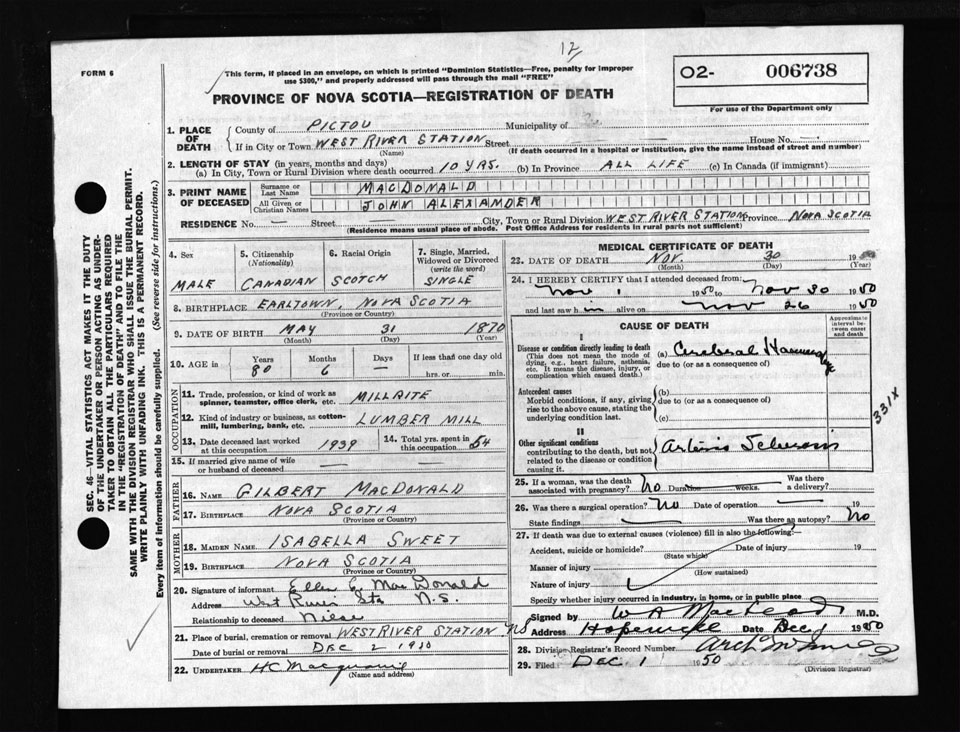 12
FORM 6
This form, if placed in an envelope, on which is printed "Dominion Statistics—Free, penalty for improper
use $300," and properly addressed will pass through the mail "FREE"
O2- 006738
For use of the Department only
PROVINCE OF NOVA SCOTIA—REGISTRATION OF DEATH
1. PLACE OF DEATH
County of PICTOU Municipality of
If in City or Town WEST RIVER STATION Street House No.
(Name) (If death occurred in a hospital or institution, give the name instead of street and number)
2. LENGTH OF STAY (in years, months and days)
(a) In City, Town or Rural Division where death occurred 10 YRS. (b) In Province ALL LIFE (c) In Canada (if immigrant)
3. PRINT NAME OF DECEASED
Surname or Last Name MACDONALD
All Given or Christian Names JOHN ALEXANDER
RESIDENCE No. — Street — City, Town or Rural Division WEST RIVER STATION Province NOVA SCOTIA
(Residence means usual place of abode. Post Office Address for residents in rural parts not sufficient)
4. Sex MALE
5. Citizenship (Nationality) CANADIAN
6. Racial Origin SCOTCH
7. Single, Married, Widowed or Divorced (write the word) SINGLE
8. BIRTHPLACE EARLTOWN, NOVA SCOTIA
(Province or Country)
9. DATE OF BIRTH MAY 31 1870
(Month) (Day) (Year)
10. AGE in Years 80 Months 6 Days — If less than one day old hrs. or min.
OCCUPATION
11. Trade, profession, or kind of work as spinner, teamster, office clerk, etc. MILLRITE
12. Kind of industry or business, as cotton-mill, lumbering, bank, etc. LUMBER MILL
13. Date deceased last worked at this occupation 1939
14. Total yrs. spent in this occupation 54
15. If married give name of wife or husband of deceased —
FATHER
16. NAME GILBERT MACDONALD
17. BIRTHPLACE NOVA SCOTIA
(Province or Country)
MOTHER
18. MAIDEN NAME ISABELLA SWEET
19. BIRTHPLACE NOVA SCOTIA
(Province or Country)
20. Signature of informant Ellen E. MacDonald
Address West River Sta N.S.
Relationship to deceased Niese
21. Place of burial, cremation or removal WEST RIVER STATION NS
Date of burial or removal DEC 2 1950
22. UNDERTAKER HC
(Name and address)
MEDICAL CERTIFICATE OF DEATH
23. DATE OF DEATH NOV. 30 19
(Month) (Day) (Year)
24. I HEREBY CERTIFY that I attended deceased from:
Nov 1 1950 to Nov 30 1950
and last saw him alive on Nov 26 1950
CAUSE OF DEATH
Approximate interval between onset and death
I
Disease or condition directly leading to death
(This does not mean the mode of dying, e.g., heart failure, asthenia, etc. It means the disease, injury, or complication which caused death.)
(a) Cerebral
due to (or as a consequence of)
Antecedent causes
Morbid conditions, if any, giving rise to the above cause, stating the underlying condition last.
(b)
due to (or as a consequence of)
(c)
331X
II
Other significant conditions
contributing to the death, but not related to the disease or condition causing it.
25. If a woman, was the death associated with pregnancy? No Duration weeks. Was there a delivery?
26. Was there a surgical operation? No Date of operation — 19
State findings — Was there an autopsy? No
27. If death was due to external causes (violence) fill in also the following:—
Accident, suicide or homicide? Date of injury 19
(State which)
Manner of injury
(How sustained)
Nature of injury
Specify whether injury occurred in industry, in home, or in public place
Signed by W A MacLeod M.D.
Address Hopewell Date Dec 1 1950
28. Division Registrar's Record Number
29. Filed DEC. 1 1950
(Division Registrar)
SEC. 46—VITAL STATISTICS ACT MAKES IT THE DUTY
OF THE UNDERTAKER OR PERSON ACTING AS UNDER-
TAKER TO OBTAIN ALL THE PARTICULARS REQUIRED
IN THE "REGISTRATION OF DEATH" AND TO FILE THE
SAME WITH THE DIVISION REGISTRAR WHO SHALL ISSUE THE BURIAL PERMIT.
WRITE PLAINLY WITH UNFADING INK. THIS IS A PERMANENT RECORD.
Every item of information should be carefully supplied. (See reverse side for instructions.)